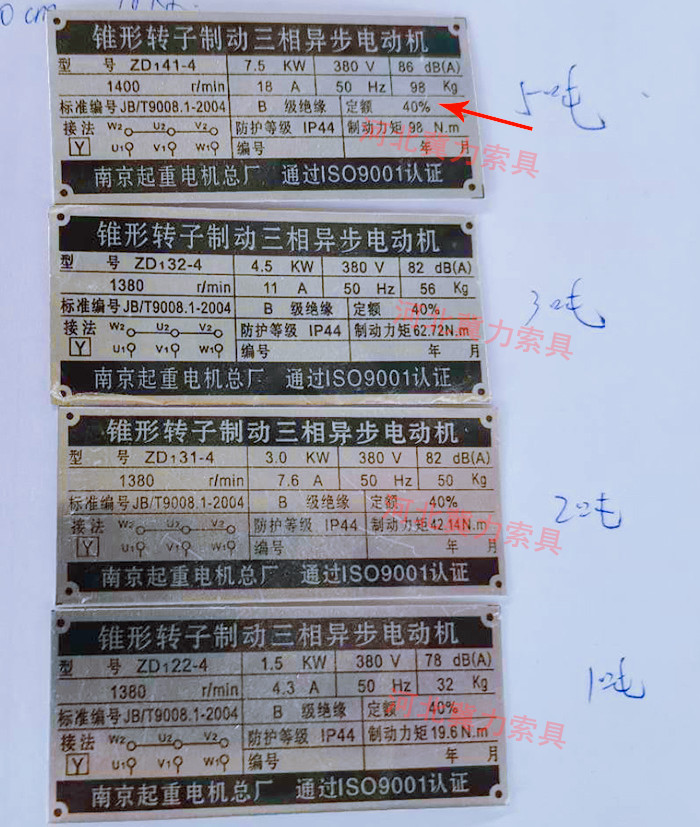 0 cm
锥形转子制动三相异步电动机
型 号 ZD₁41-4 7.5 KW 380 V 86 dB(A)
1400 r/min 18 A 50 Hz 98 Kg
标准编号JB/T9008.1-2004 B 级绝缘 定额 40%
接法 W2 U2 V2 防护等级 IP44 制动力矩 98 N.m
Y U1 V1 W1 编号 年 月
南京起重电机总厂 通过ISO9001认证
河北冀力索具
5吨
锥形转子制动三相异步电动机
型 号 ZD₁32-4 4.5 KW 380 V 82 dB(A)
1380 r/min 11 A 50 Hz 56 Kg
标准编号JB/T9008.1-2004 B 级绝缘 定额 40%
接法 W2 U2 V2 防护等级 IP44 制动力矩62.72N.m
Y U1 V1 W1 编号 年 月
南京起重电机总厂 通过ISO9001认证
河北冀力索具
3吨
锥形转子制动三相异步电动机
型 号 ZD₁31-4 3.0 KW 380 V 82 dB(A)
1380 r/min 7.6 A 50 Hz 50 Kg
标准编号JB/T9008.1-2004 B 级绝缘 定额 40%
接法 W2 U2 V2 防护等级 IP44 制动力矩42.14N.m
Y U1 V1 W1 编号 年 月
南京起重电机总厂 通过ISO9001认证
河北冀力索具
2吨
锥形转子制动三相异步电动机
型 号 ZD₁22-4 1.5 KW 380 V 78 dB(A)
1380 r/min 4.3 A 50 Hz 32 Kg
标准编号JB/T9008.1-2004 B 级绝缘 定额 40%
接法 W2 U2 V2 防护等级 IP44 制动力矩19.6N.m
Y U1 V1 W1 编号 年 月
南京起重电机总厂 通过ISO9001认证
河北冀力索具
1吨